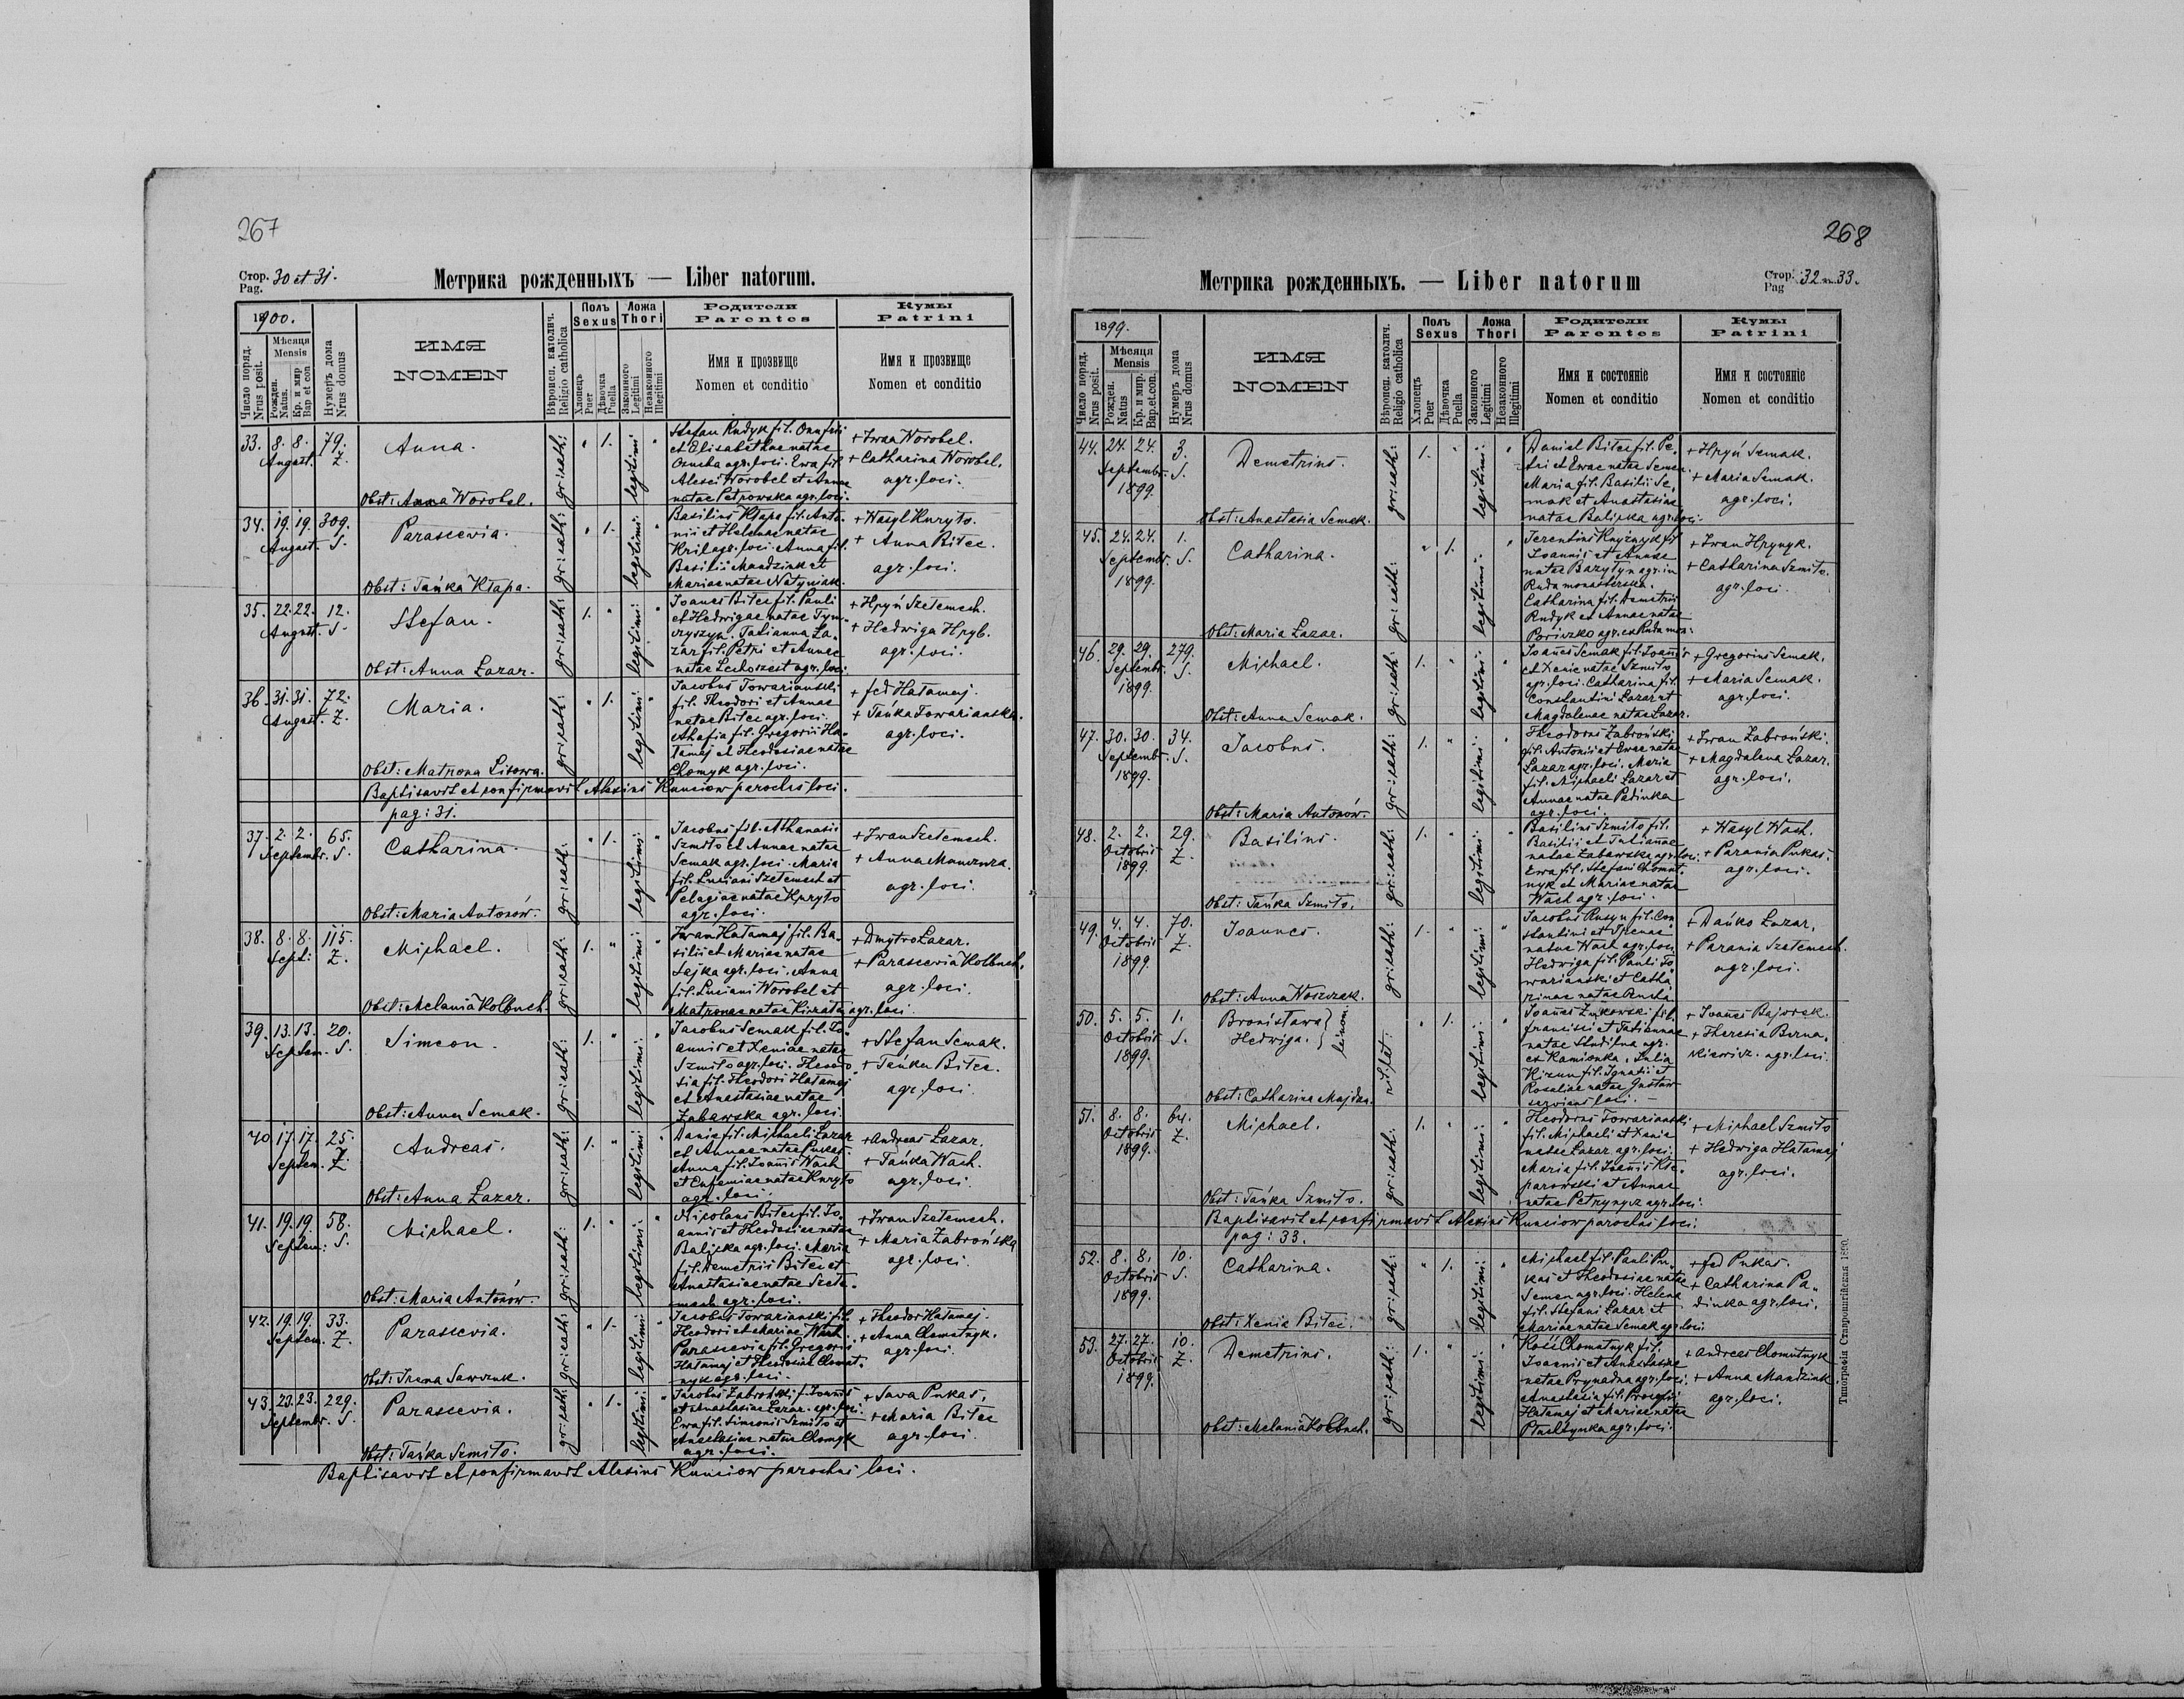 267
Стор. Pag. 30 et 31.
Метрика рожденныхъ — Liber natorum.
1900.
Число поряд. Nrus posit.
Мѣсяця Mensis
Рожден. Natus.
Кр. и мир Bap et con
Нумеръ дома Nrus domus
ИМЯ
NOMEN
Вѣроисп. католич. Religio catholica
Полъ Sexus
Хлопець Puer
Дѣвочка Puella
Ложа Thori
Законного Legitimi
Незаконного Illegitimi
Родители
Parentes
Имя и прозвище
Nomen et conditio
Кумы
Patrini
Имя и прозвище
Nomen et conditio
33. 8. 8. August. 79. Z.
Anna.
Obst: Anna Worobel.
gr: cath: " 1. legitimi "
Stefan Rudyk fil. Onufrii
et Elisabethae natae
agr. loci. Ewa fil.
Alexii Worobel et Annae
natae Petrowska agr. loci.
+ Iwan Worobel.
+ Catharina Worobel.
agr. loci.
34. 19. 19. August. 309. S.
Parascevia.
Obst: Tańka Kłapa.
gr: cath: " 1. legitimi: "
Basilius Kłapa fil. Anto-
nii et Helenae natae
Kril agr. loci. Anna fil.
Basilii Mandziuk et
Mariae natae Natyniak.
+ Wasyl Kuryło.
+ Anna Bitec.
agr. loci.
35. 22. 22. August. 12. S.
Stefan.
Obst: Anna Łazar.
gr: cath: 1. " legitimi: "
Ioannes Bitec fil. Pauli
et Hedwigae natae Tym-
czyszyn. Tatianna Ła-
zar fil. Petri et Annae
natae agr. loci.
+ Hryń Szełemech.
+ Hedwiga Hryb.
agr. loci.
36. 31. 31. August. 72. Z.
Maria.
Obst: Matrona Lisowa.
gr: cath: " 1. legitimi: "
Iacobus Towarianski
fil. Theodori et Annae
natae Bitec agr. loci.
Ahafia fil. Gregorii Ha-
łamaj et Theodosiae natae
Chomyk agr. loci.
+ Fed Hałamaj.
+ Tańka Towarianska.
agr. loci.
Baptisavit et confirmavit Alexius Kunciow parochus loci.
pag: 31.
37. 2. 2. Septembr. 65. S.
Catharina.
Obst: Maria Antonów.
gr: cath: " 1. legitimi: "
Iacobus fil. Athanasii
Szmiło et Annae natae
Semak agr. loci. Maria
fil. Luciani Szełemech et
Pelagiae natae
agr. loci.
+ Iwan Szełemech.
+ Anna
agr. loci.
38. 8. 8. Sept: 115. Z.
Michael.
Obst: Melania Kolbuch.
gr: cath: 1. " legitimi: "
Iwan Hałamaj fil. Ba-
silii et Mariae natae
Sejka agr. loci. Anna
fil. Luciani Worobel et
Matronae natae agr. loci
+ Dmytro Łazar.
+ Parascevia Kolbuch.
agr. loci.
39. 13. 13. Septem. 20. S.
Simeon.
Obst: Anna Semak.
gr: cath: 1. " legitimi: "
Iacobus Semak fil. Io-
annis et Xeniae natae
Szmiło agr. loci. Theodo-
sia fil. Theodori Hałamaj
et Anastasiae natae
Zabawska agr. loci.
+ Stefan Semak.
+ Tańka Bitec.
agr. loci.
40. 17. 17. Septem. 25. Z.
Andreas.
Obst: Anna Łazar.
gr: cath: 1. " legitimi: "
Dania fil. Michaeli Łazar
et Annae natae Pukas.
Anna fil. Ioannis Wach
et Eufemiae natae Kuryło
agr. loci.
+ Andreas Łazar.
+ Tańka Wach.
agr. loci.
41. 19. 19. Septem: 58. S.
Michael.
Obst: Maria Antonów.
gr: cath: 1. " legitimi: "
Nicolaus Bitec fil. Io-
annis et Theodosiae natae
Balicka agr. loci. Maria
fil. Demetrii Bitec et
Anastasiae natae Szełe-
mech agr. loci.
+ Iwan Szełemech.
+ Maria Zabrońska
agr. loci.
42. 19. 19. Septem. 33. Z.
Parascevia.
Obst: Irena Sawczuk.
gr: cath: " 1. legitimi "
Iacobus Towarianski fil.
Theodori et Mariae Wach.
Parascevia fil. Gregorii
Hałamaj et Theodosiae Chomut-
nyk agr. loci.
+ Theodor Hałamaj.
+ Anna Chomutnyk.
agr. loci.
43. 23. 23. Septembr. 229. S.
Parascevia.
Obst: Tańka Szmiło.
gr: cath: " 1. legitimi: "
Iacobus Zabroński f. Ioannis
et Anastasiae Łazar. agr. loci.
Ewa fil. Simeonis Szmiło et
Anastasiae natae Chomyk
agr. loci.
+ Sava Pukas.
+ Maria Bitec
agr. loci.
Baptisavit et confirmavit Alexius Kunciow parochus loci.
268
Метрика рожденныхъ. — Liber natorum
Стор. Pag 32 33.
1899.
Число поряд. Nrus posit.
Мѣсяця Mensis
Рожден. Natus
Кр. и мир. Bap.et.con.
Нумеръ дома Nrus domus
ИМЯ
NOMEN
Вѣроисп. католич. Religio catholica
Полъ Sexus
Хлопецъ Puer
Дѣвочка Puella
Ложа Thori
Законного Legitimi
Незаконного Illegitimi
Родители
Parentes
Имя и состояніе
Nomen et conditio
Кумы
Patrini
Имя и состояніе
Nomen et conditio
44. 24. 24. Septembr. 1899. 3. S.
Demetrius.
Obst: Anastasia Semak.
gr: cath: 1. " legitimi: "
Daniel Bitec fil. Pe-
tri et Ewae natae Semen.
Maria fil. Basilii Se-
mak et Anastasiae
natae Balicka agr. loci.
+ Hryń Semak.
+ Maria Semak.
agr. loci.
45. 24. 24. Septembr. 1899. 1. S.
Catharina.
Obst: Maria Łazar.
gr: cath: " 1. legitimi: "
Terentius fil
Ioannis et Annae
natae Bazyłyn agr. in
Ruda monasterska.
Catharina fil. Demetrii
Rudyk et Annae natae
agr. ex Ruda mon:
+ Iwan
+ Catharina Szmiło.
agr. loci.
46. 29. 29. Septembr. 1899. 279. S.
Michael.
Obst: Anna Semak.
gr: cath: 1. " legitimi: "
Ioañes Semak fil. Ioañis
et Xenie natae Szmiło
agr. loci. Catharina fil.
Constantini Łazar et
Magdalenae natae Łazar.
+ Gregorius Semak.
+ Maria Semak.
agr. loci.
47. 30. 30. Septembr. 1899. 34. S.
Iacobus.
Obst: Maria Antonów.
gr: cath: 1. " legitimi: "
Theodorus Zabroński
fil. Antonii et Ewae natae
Łazar agr. loci. Maria
fil. Michaeli Łazar et
Annae natae Padinka
agr. loci.
+ Iwan Zabroński.
+ Magdalena Łazar.
agr. loci.
48. 2. 2. Octobris 1899. 29. Z.
Basilius.
Obst: Tańka Szmiło.
gr: cath: 1. " legitimi: "
Basilius Szmiło fil.
Basilii et Tatiannae
natae Zabawska agr. loci.
Ewa fil. Stefani Chomut-
nyk et Mariae natae
Wach agr. loci.
+ Wasyl Wach.
+ Parania Pukas.
agr. loci.
49. 4. 4. Octobris 1899. 70. Z.
Ioannes.
Obst: Anna Woszczak.
gr: cath: 1. " legitimi: "
Iacobus Rusyn fil. Con
stantini et Irenae
natae Wach agr. loci
Hedwiga fil. Pauli To-
warianski et Catha-
rinae natae
+ Dańko Łazar.
+ Parania Szełemech.
agr. loci.
50. 5. 5. Octobris 1899. 1. S.
Bronisława
Hedwiga. } binom:
Obst: Catharina Majdan.
rit. lat: " 1. legitimi: "
Ioañes Żukowski fil.
Francisci et Tatiannae
natae agr.
ex Kamionka. Julia
fil. Ignatii et
Rosaliae natae Gustaw
serviens loci. —
+ Ioañes Bajorek.
+ Theresia Berna-
kiewicz. agr. loci.
51. 8. 8. Octobris 1899. 64. Z.
Michael.
Obst: Tańka Szmiło.
gr: cath: 1. " legitimi: "
Theodorus Towarianski
fil. Michaeli et Xenie
natae Łazar agr. loci.
Maria fil. Ioañis Kac-
parowski et Annae
natae Petrynycz agr. loci.
+ Michael Szmiło
+ Hedwiga Hałamaj
agr. loci.
Baptisavit et confirmavit Alexius Kunciow parochus loci.
pag: 33.
52. 8. 8. Octobris 1899. 10. S.
Catharina.
Obst: Xenia Bitec.
gr: cath: " 1. legitimi: "
Michael fil. Pauli Pu-
kas et Theodosiae natae
Semen agr. loci. Helena
fil. Stefani Łazar et
Mariae natae Semak agr. loci.
+ Fed Pukas.
+ Catharina Pa-
dinka agr. loci.
53. 27. 27. Octobris 1899. 10. Z.
Demetrius.
Obst: Melania Kolbuch.
gr: cath: 1. " legitimi: "
Kość Chomutnyk fil.
Ioannis et Anastasiae
natae Prynadna agr. loci.
Anastasia fil. Procopii
Hałamaj et Mariae natae
agr. loci.
+ Andreas Chomutnyk
+ Anna Mandziuk
agr. loci.
Типографія Ставропигійская 1890.